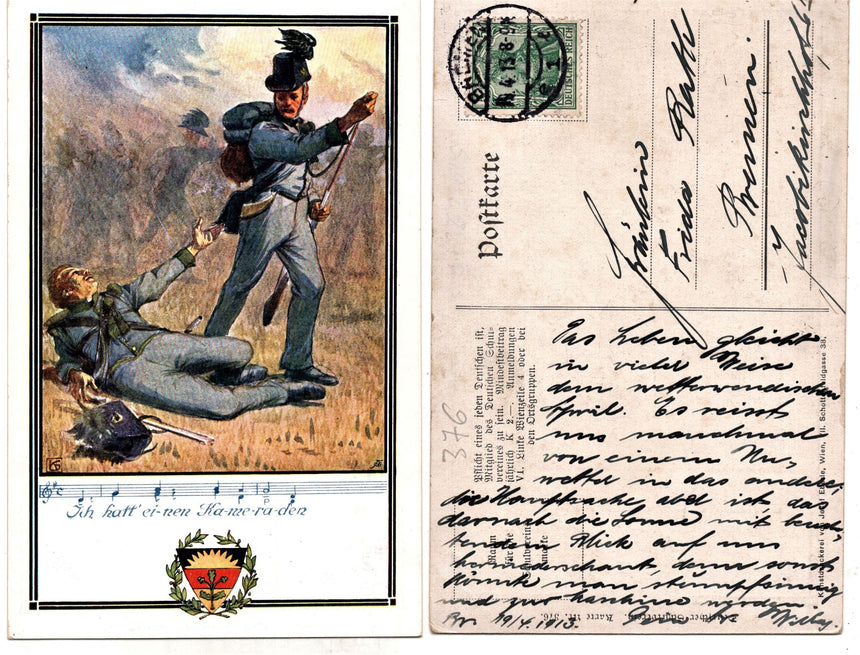 Ich hatt' ei-nen Ka-me-ra-den
BREMEN
19.4.13.8-9
1
DEUTSCHES REICH
Postkarte
Fräulein
Frida Rath
Bremen.
Jacobikirchhof
Pflicht eines jeden Deutschen ist,
Mitglied des Deutschen Schul-
vereines zu sein. Mindestbeitrag
jährlich K 2.—. Anmeldungen
VI. Linke Wienzeile 4 oder bei
den Ortsgruppen.
376
Das Leben gleicht
in vieler Weise
dem wetterwendischen
April. Es reisst
uns manchmal
von einem Un-
wetter in das andere,
die Hauptsache aber ist das
darnach die Sonne mit
Blick auf uns
herunterschaut, denn sonst
könnte man stumpfsinnig
und zur Maschine werden.
Br. 19/4. 1913.
Deutscher Schulverein Karte Nr. 376.
Kunstdruckerei von Josef Eberle, Wien, VII. Schottenfeldgasse 38.